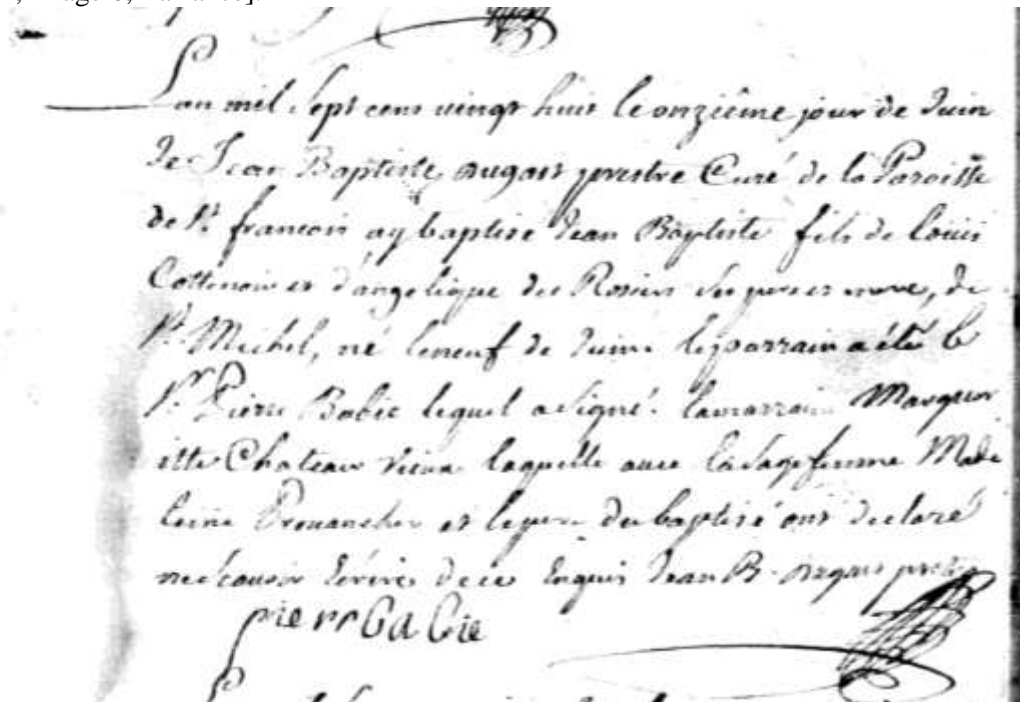 L'an mil sept cens vingt huit le onziéme jour de Juin
Je Jean Baptiste dugast prestre Curé de la Paroisse
de St francois ay baptisé Jean Baptiste fils de Loüis
Cottenoir et d'angelique des Rosiers ses pere et mere, de
St Michel, né le neuf de Juin le parrain a été le
Sr Pierre Babie lequel a signé. la marraine Marguer
itte Chateau Vieux laquelle avec La Sage femme Made
leine Prouancher et le pere du baptisé ont declaré
ne scauoir Ecrire de ce Enquis Jean B. dugast prestre
pierr babie